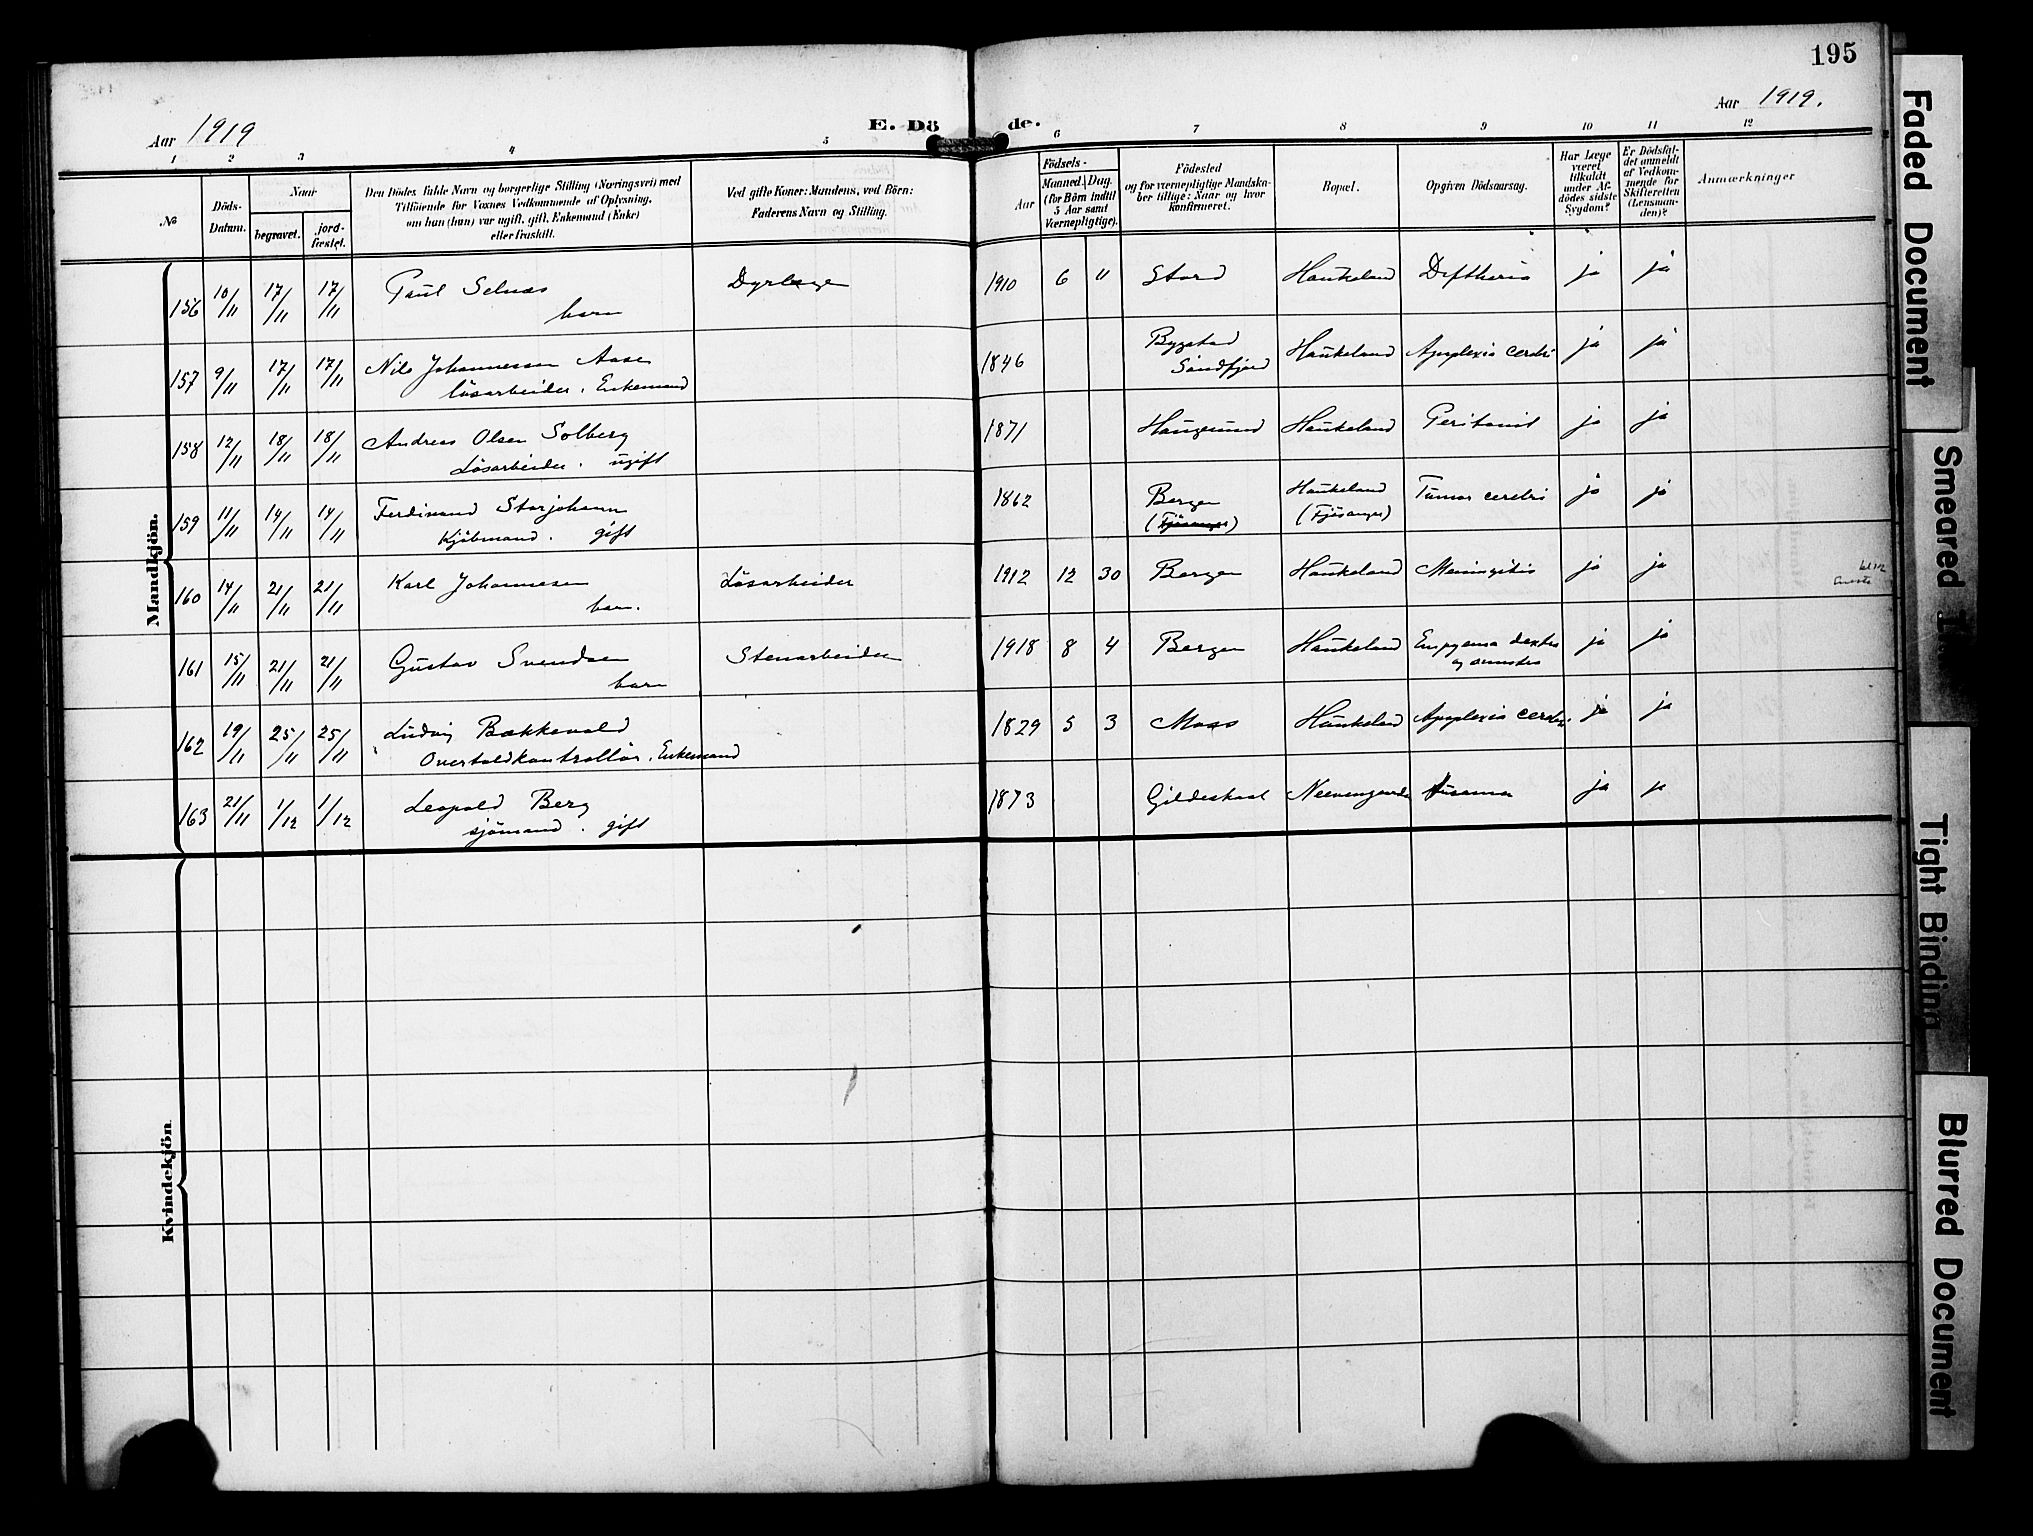 195
Aar 1919
E. Dö
de.
Aar 1919.
1 2 3 4 5 6 7 8 9 10 11 12
№
Döds-
Datum.
Naar
begravet.
jord-
fæstet.
Den Dödes fulde Navn og borgerlige Stilling (Næringsvei) med
Tilföiende for Voxnes Vedkommende af Oplysning,
om hun (han) var ugift, gift, Enkemand (Enke)
eller fraskilt.
Ved gifte Koner: Mandens, ved Börn:
Faderens Navn og Stilling.
Aar
Födsels-
Maaned. Dag.
(for Börn indtil
5 Aar samt
Værnepligtige).
Födested
og for værnepligtige Mandska-
ber tillige: Naar og hvor
konfirmeret.
Bopæl.
Opgiven Dödsaarsag.
Har Læge
været
tilkaldt
under Af-
dödes sidste
Sygdom?
Er Dödsfal-
det anmeldt
af Vedkom-
mende for
Skifteretten
(Lensman-
den)?
Anmærkninger
Mandkjön.
156 10/11 17/11 17/11 Paul Selnæs Dyrlæge 1910 6 11 Stord Haukeland Diftheria ja ja
barn
157 9/11 17/11 17/11 Nils Johannessen Aase 1846 Bygstad Haukeland Apoplexia cerebri ja ja
lösarbeider. Enkemand Söndfjord
158 12/11 18/11 18/11 Andreas Olsen Solberg 1871 Haugesund Haukeland Peritonit ja ja
Lösarbeider. ugift
159 11/11 14/11 14/11 Ferdinand Storjohann 1862 Bergen Haukeland Tumor cerebri ja ja
Kjöbmand. gift (Fjösanger) (Fjösanger)
160 14/11 21/11 21/11 Karl Johannesen Lösarbeider 1912 12 30 Bergen Haukeland Meningitis ja ja
barn.
161 15/11 21/11 21/11 Gustav Svendsen Stenarbeider 1918 8 4 Bergen Haukeland Empyema dextra ja ja
barn og sinistra
162 19/11 25/11 25/11 Ludvig Bækkevold 1829 5 3 Moss Haukeland Apoplexia cerebri ja ja
Overtoldkontrollör. Enkemand
163 21/11 1/12 1/12 Leopold Berg 1873 Gildeskaal Neevengaarden ja ja
sjömand. gift
Kvindekjön.
Faded Document
Smeared
Tight Binding
Blurred Document